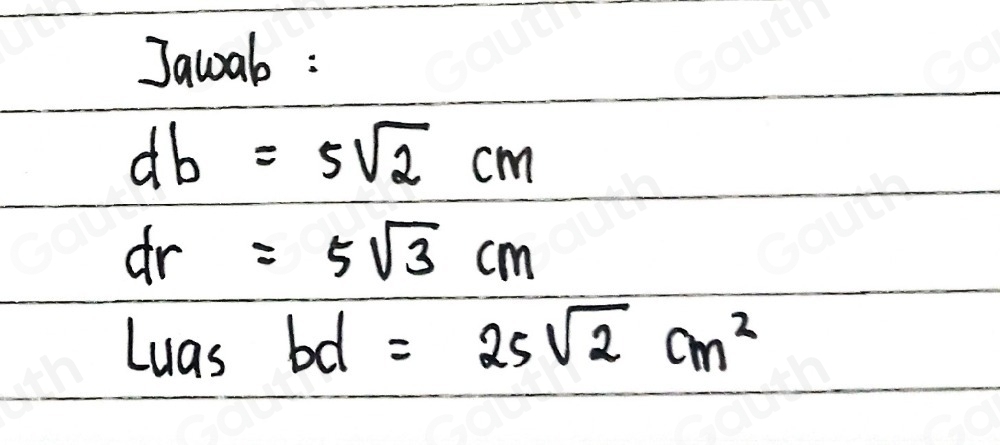 Jawab :
db = 5√2 cm
dr = 5√3 cm
Luas bd = 25√2 cm²